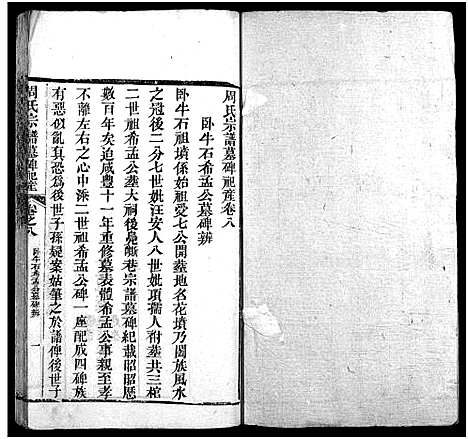 周氏宗譜墓碑祀産卷八
卧牛石希孟公墓碑辨
卧牛石祖墳係始祖愛七公開塟地名花墳乃闔族風水
之冠後二分七世妣汪安人八世妣項孺人附塟共三棺
二世祖希孟公塟大祠後巷宗譜墓碑紀載昭昭歷
數百年矣迨咸豐十一年重修墓表體希孟公至孝
不離左右之心中添二世祖希孟公碑一座配成四碑族
有惡似亂真恐為後世子孫疑案姑筆之於譜俾後世子
周氏宗譜墓碑祀産
卷之八
卧牛石希孟公墓碑辨
一